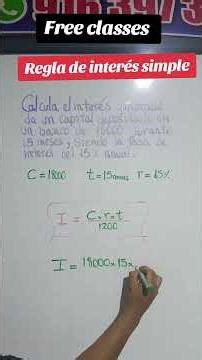 9163973
Free classes
Regla de interés simple
Calcula el interés generado
da un capital depositado en
un banco de 18000 durante
15 meses, siendo la tasa de
interes del 25% anual.
C=18000 t=15meses r=
I = C.r.t
1200
I = 18000x15x